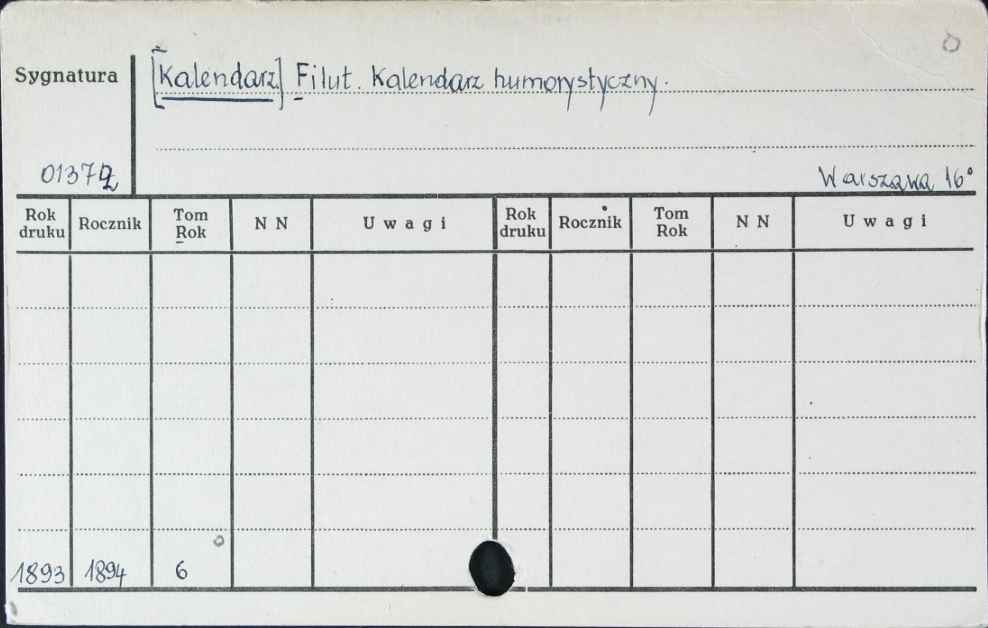 Sygnatura
[Kalendarz] Filut. Kalendarz humorystyczny.
01372
Warszawa 16°
Rok druku Rocznik Tom Rok N N Uwagi Rok druku Rocznik Tom Rok N N Uwagi
1893 1894 6